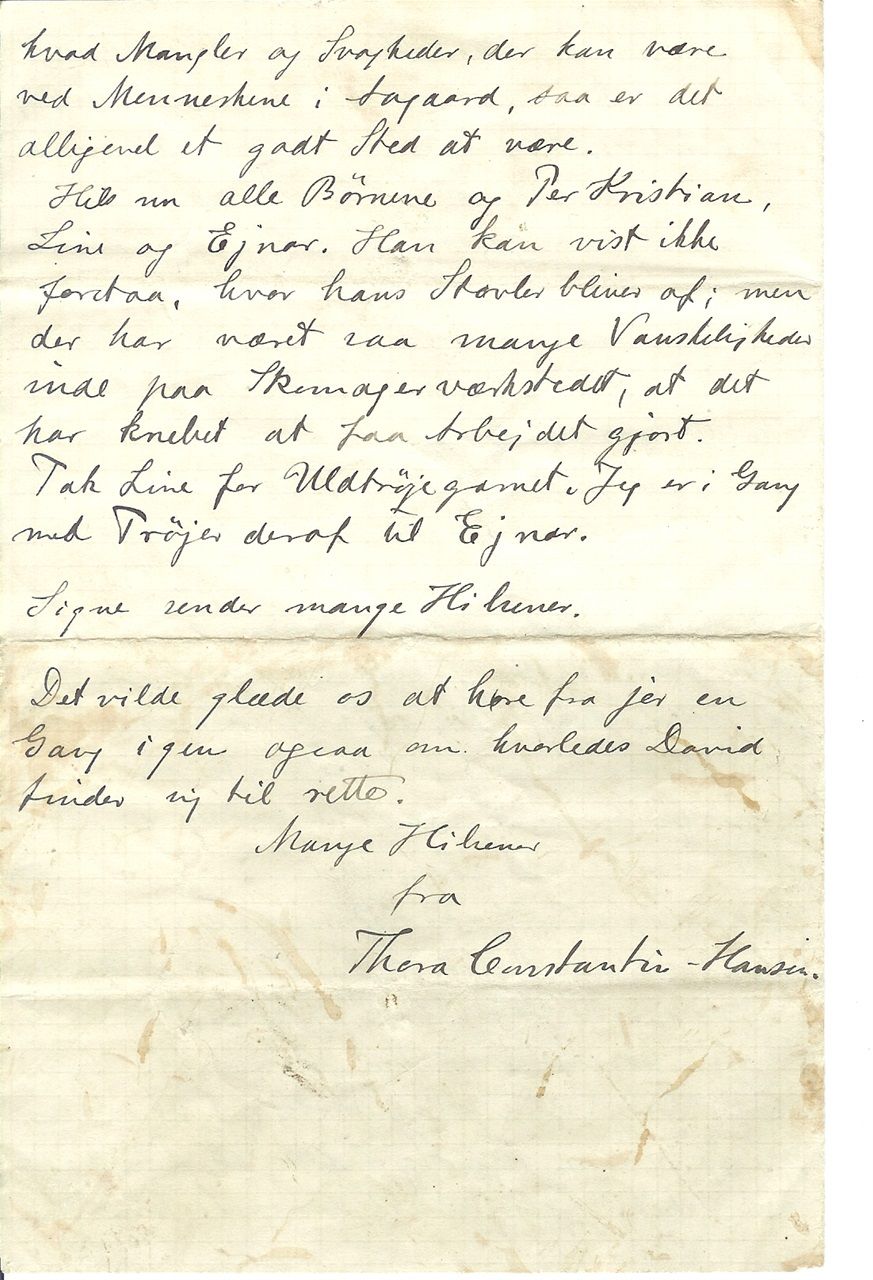 hvad Mangler og Svagheder, der kan være
ved Menneskene i Aagaard, saa er det
alligevel et godt Sted at være.
Hils nu alle Børnene og Per Kristian,
Line og Ejnar. Han kan vist ikke
forstaa, hvor hans Støvler bliver af; men
der har været saa mange Vanskeligheder
inde paa Skomagerværkstedet, at det
har knebet at faa Arbejdet gjort.
Tak Line for Uldtrøjegarnet. Jeg er i Gang
med Trøjer deraf til Ejnar.
Signe sender mange Hilsener.
Det vilde glæde os at høre fra jer en
Gang igen ogsaa om hvorledes David
finder sig til rette.
Mange Hilsener
fra
Thora Constantin-Hansen.